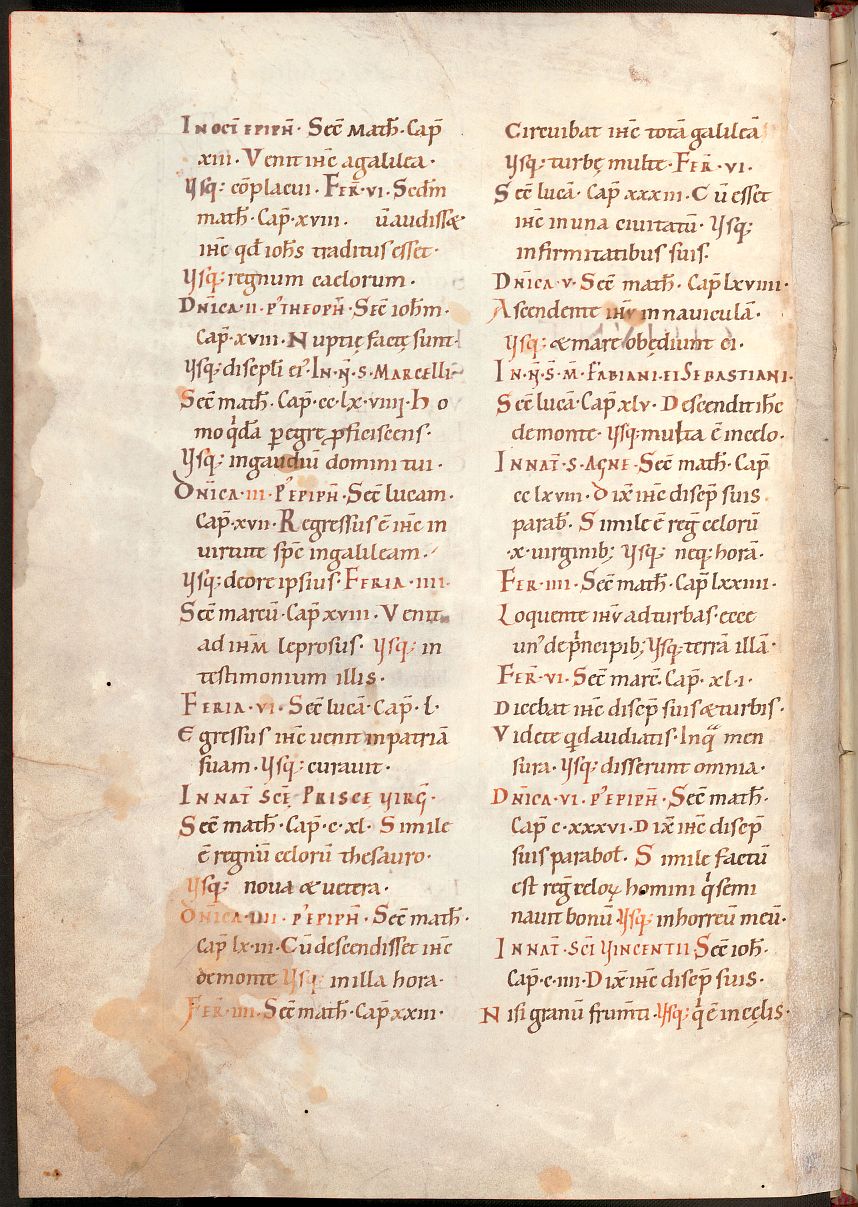 IN OCT̄ EPIPH̄ · Sec̄ Math̄ · Cap̄
xiii · Venit ih̄c a galilea ·
Ysq; cōplacui · FER̄ · VI · Sec̄dm̄
math̄ · Cap̄ · xviii · ū audisset
ih̄c qđ ioħs traditus esset ·
Ysq; regnum caelorum ·
DN̄ICA · II · P' THEOPH̄ · Sec̄ ioh̄m ·
Cap̄ · xviii · Nuptię factę sunt ·
Ysq; discipłi ei' · IN · N̄ · S · MARCELLI
Sec̄ math̄ · Cap̄ · cc · lx · viiii · Ho
mo qđā peregre proficiscens ·
Ysq; in gaudiū domini tui ·
DN̄ICA · III · P' EPIPH̄ · Sec̄ lucam ·
Cap̄ · xvii · Regressus ē ih̄c in
virtute sp̄c in galileam ·
Ysq; de ore ipsius · FERIA · IIII ·
Sec̄ marcū · Cap̄ xviii · Venit
ad ih̄m leprosus · Ysq; in
testimonium illis ·
FERIA · VI · Sec̄ lucā · Cap̄ · l ·
Egressus ih̄c venit in patriā
suam · Ysq; curavit ·
IN NAT̄ SCĒ PRISCĘ VIRḠ ·
Sec̄ math̄ · Cap̄ · c · xl · Simile
ē regnū celorū thesauro ·
Ysq; nova & vetera ·
DN̄ICA · IIII · P' EPIPH̄ · Sec̄ math̄ ·
Cap̄ lx · iii · Cū descendisset ih̄c
de monte Ysq; in illa hora ·
FER̄ · IIII · Sec̄ math̄ · Cap̄ xxiii ·
Circuibat ih̄c totā galileā
Ysq; turbę multe · FER̄ · VI ·
Sec̄ lucā · Cap̄ xxxiii · Cū esset
ih̄c in una civitatū · Ysq;
infirmitatibus suis ·
DN̄ICA · V · Sec̄ math̄ · Cap̄ lxviiii ·
Ascendente ih̄u in naviculā ·
Ysq; & mare obędiunt ei ·
IN · N̄ · S̄ · M̄ · FABIANI · ET SEBASTIANI ·
Sec̄ lucā · Cap̄ xlv · Descendit ih̄c
de monte · Ysq; multa ē in celo ·
IN NAT̄ · S · AGNE · Sec̄ math̄ · Cap̄
cc lxviii · Dix̄ ih̄c discip̄ suis
parab̄ · Simile ē reḡ celorū
· x · virginib; Ysq; neq; horā ·
FER · IIII · Sec̄ math̄ · Cap̄ lxxiiii ·
Loquente ih̄u ad turbas · ecce
un' de principib; Ysq; terrā illā ·
FER̄ · VI · Sec̄ marc̄ · Cap̄ · xl · i ·
Dicebat ih̄c discip̄ suis & turbis ·
Videte qđ audiatis · In qua men
sura · Ysq; disserunt omnia ·
DN̄ICA · VI · P' EPIPH̄ · Sec̄ math̄ ·
Cap̄ c · xxxvi · Dix̄ ih̄c discip̄
suis parabol̄ · Simile factū
est reḡ celoꝝ homini qi semi
navit bonū Ysq; in horreū meū ·
IN NAT̄ · SCĪ VINCENTII Sec̄ ioh̄ ·
Cap̄ · c · iiii · Dix̄ ih̄c discip̄ suis ·
Nisi granū frum̄ti · Ysq; qi ē in cęlis ·